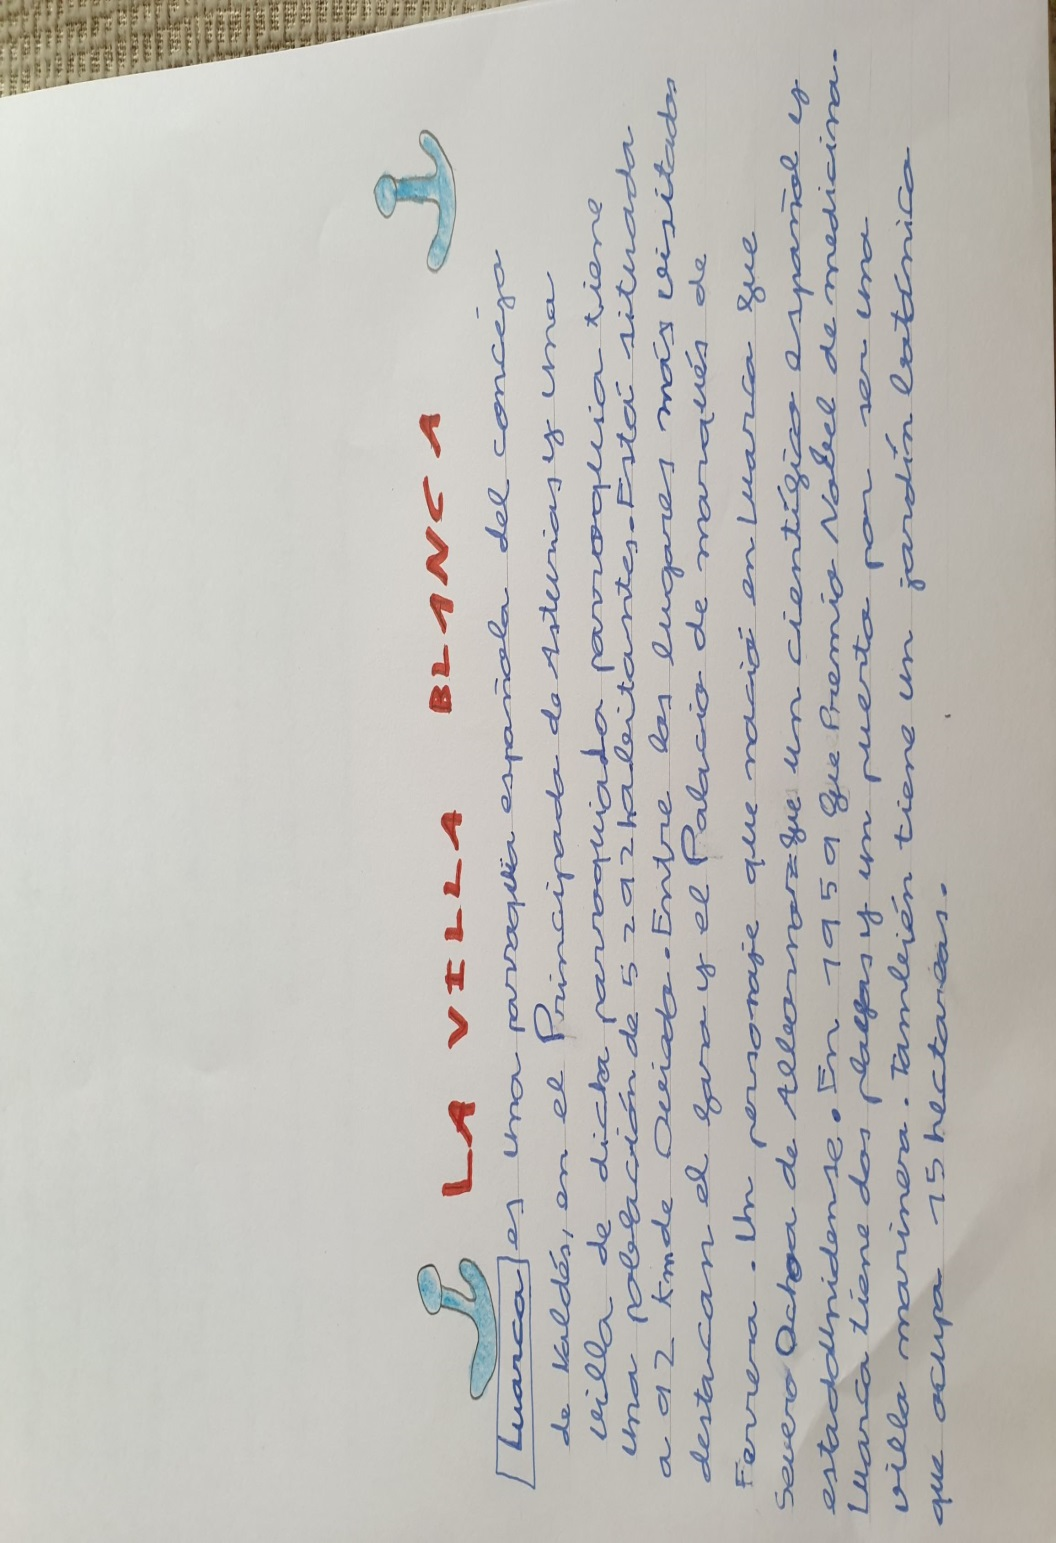 LA VILLA BLANCA
Luarca es una parroquia española del concejo
de Valdés, en el Principado de Asturias y una
villa de dicha parroquia. La parroquia tiene
una población de 5 292 habitantes. Está situada
a 92 km de Oviedo. Entre los lugares más visitados
destacan el faro y el Palacio de marqués de
Ferrera. Un personaje que nació en Luarca fue
Severo Ochoa de Albornoz fue un científico español y
estadounidense. En 1959 fue Premio Nobel de medicina.
Luarca tiene dos playas y un puerto por ser una
villa marinera. También tiene un jardín botánico
que ocupa 15 hectáreas.